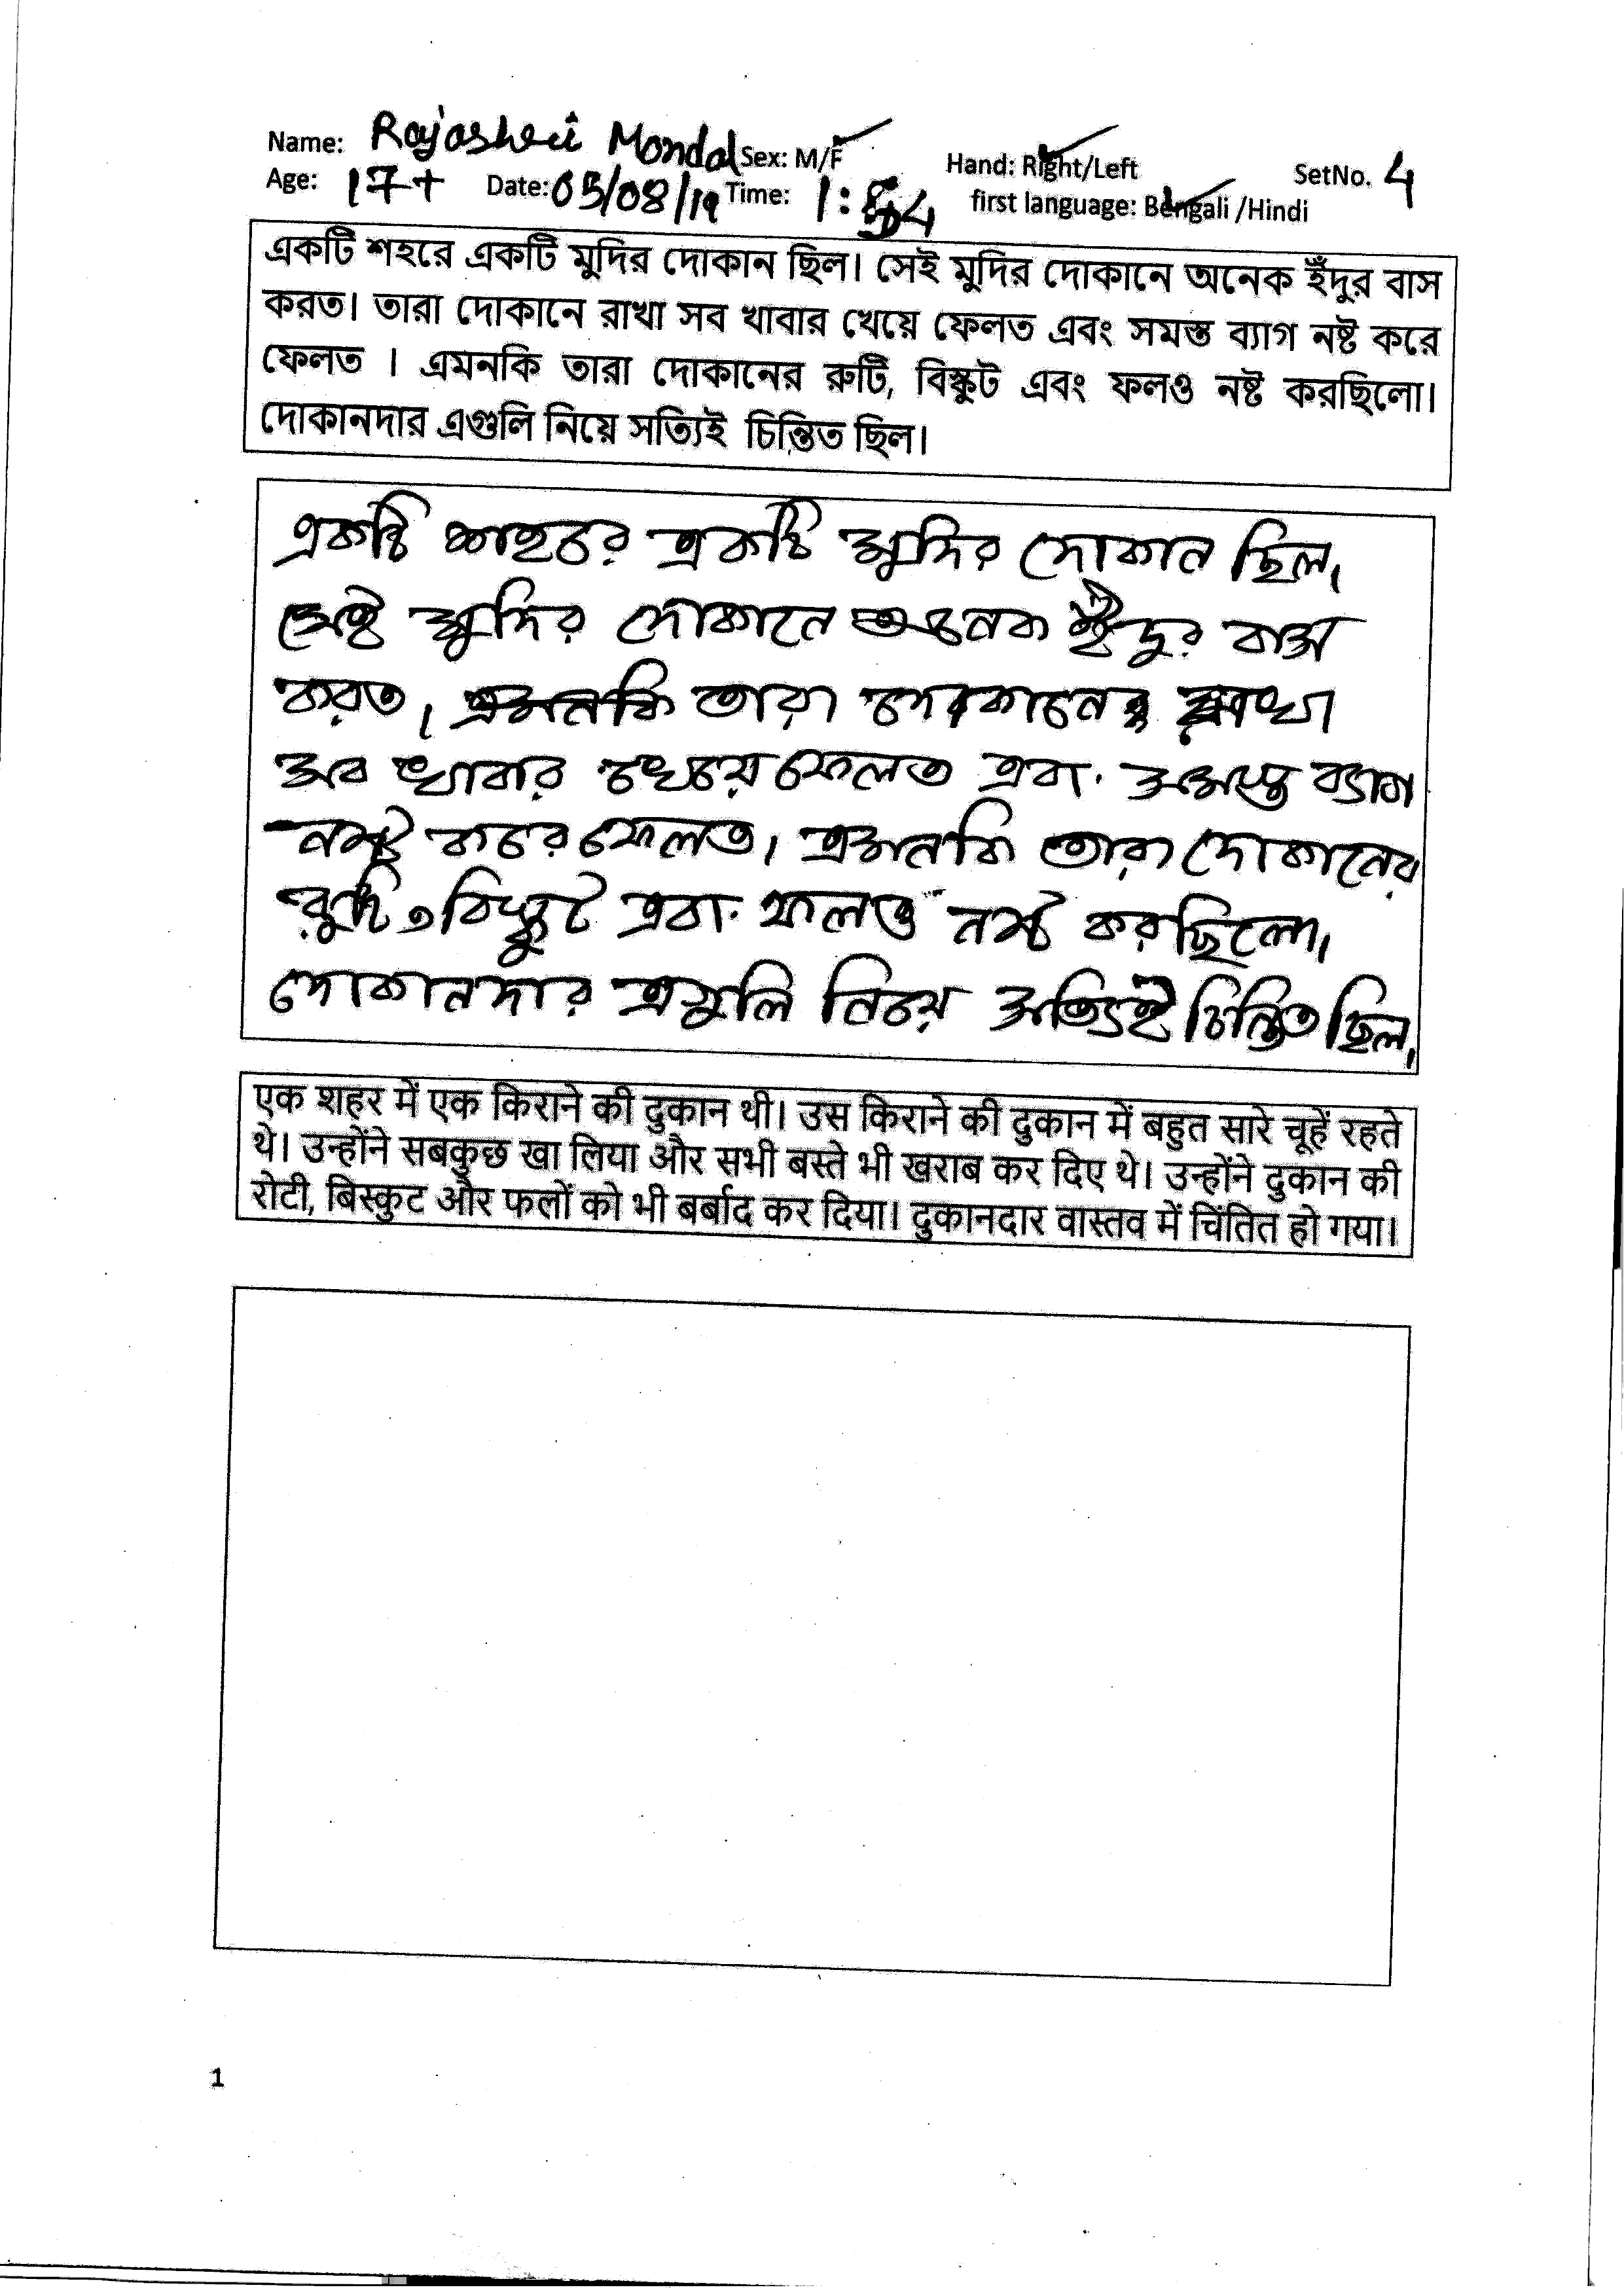 Name: Rajashree Mondal Sex: M/F Hand: Right/Left SetNo. 4
Age: 17+ Date: 05/08/19 Time: 1:54 first language: Bengali /Hindi
একটি শহরে একটি মুদির দোকান ছিল। সেই মুদির দোকানে অনেক ইঁদুর বাস
করত। তারা দোকানে রাখা সব খাবার খেয়ে ফেলত এবং সমস্ত ব্যাগ নষ্ট করে
ফেলত । এমনকি তারা দোকানের রুটি, বিস্কুট এবং ফলও নষ্ট করছিলো।
দোকানদার এগুলি নিয়ে সত্যিই চিন্তিত ছিল।
একটি শহরে একটি মুদির দোকান ছিল।
সেই মুদির দোকানে অনেক ইঁদুর বাস
করত। এমনকি তারা দোকানে রাখা
সব খাবার খেয়ে ফেলত এবং সমস্ত ব্যাগ
নষ্ট করে ফেলত। এমনকি তারা দোকানের
রুটি, বিস্কুট এবং ফলও নষ্ট করছিলো।
দোকানদার এগুলি নিয়ে সত্যিই চিন্তিত ছিল।
एक शहर में एक किराने की दुकान थी। उस किराने की दुकान में बहुत सारे चूहें रहते
थे। उन्होंने सबकुछ खा लिया और सभी बस्ते भी खराब कर दिए थे। उन्होंने दुकान की
रोटी, बिस्कुट और फलों को भी बर्बाद कर दिया। दुकानदार वास्तव में चिंतित हो गया।
1